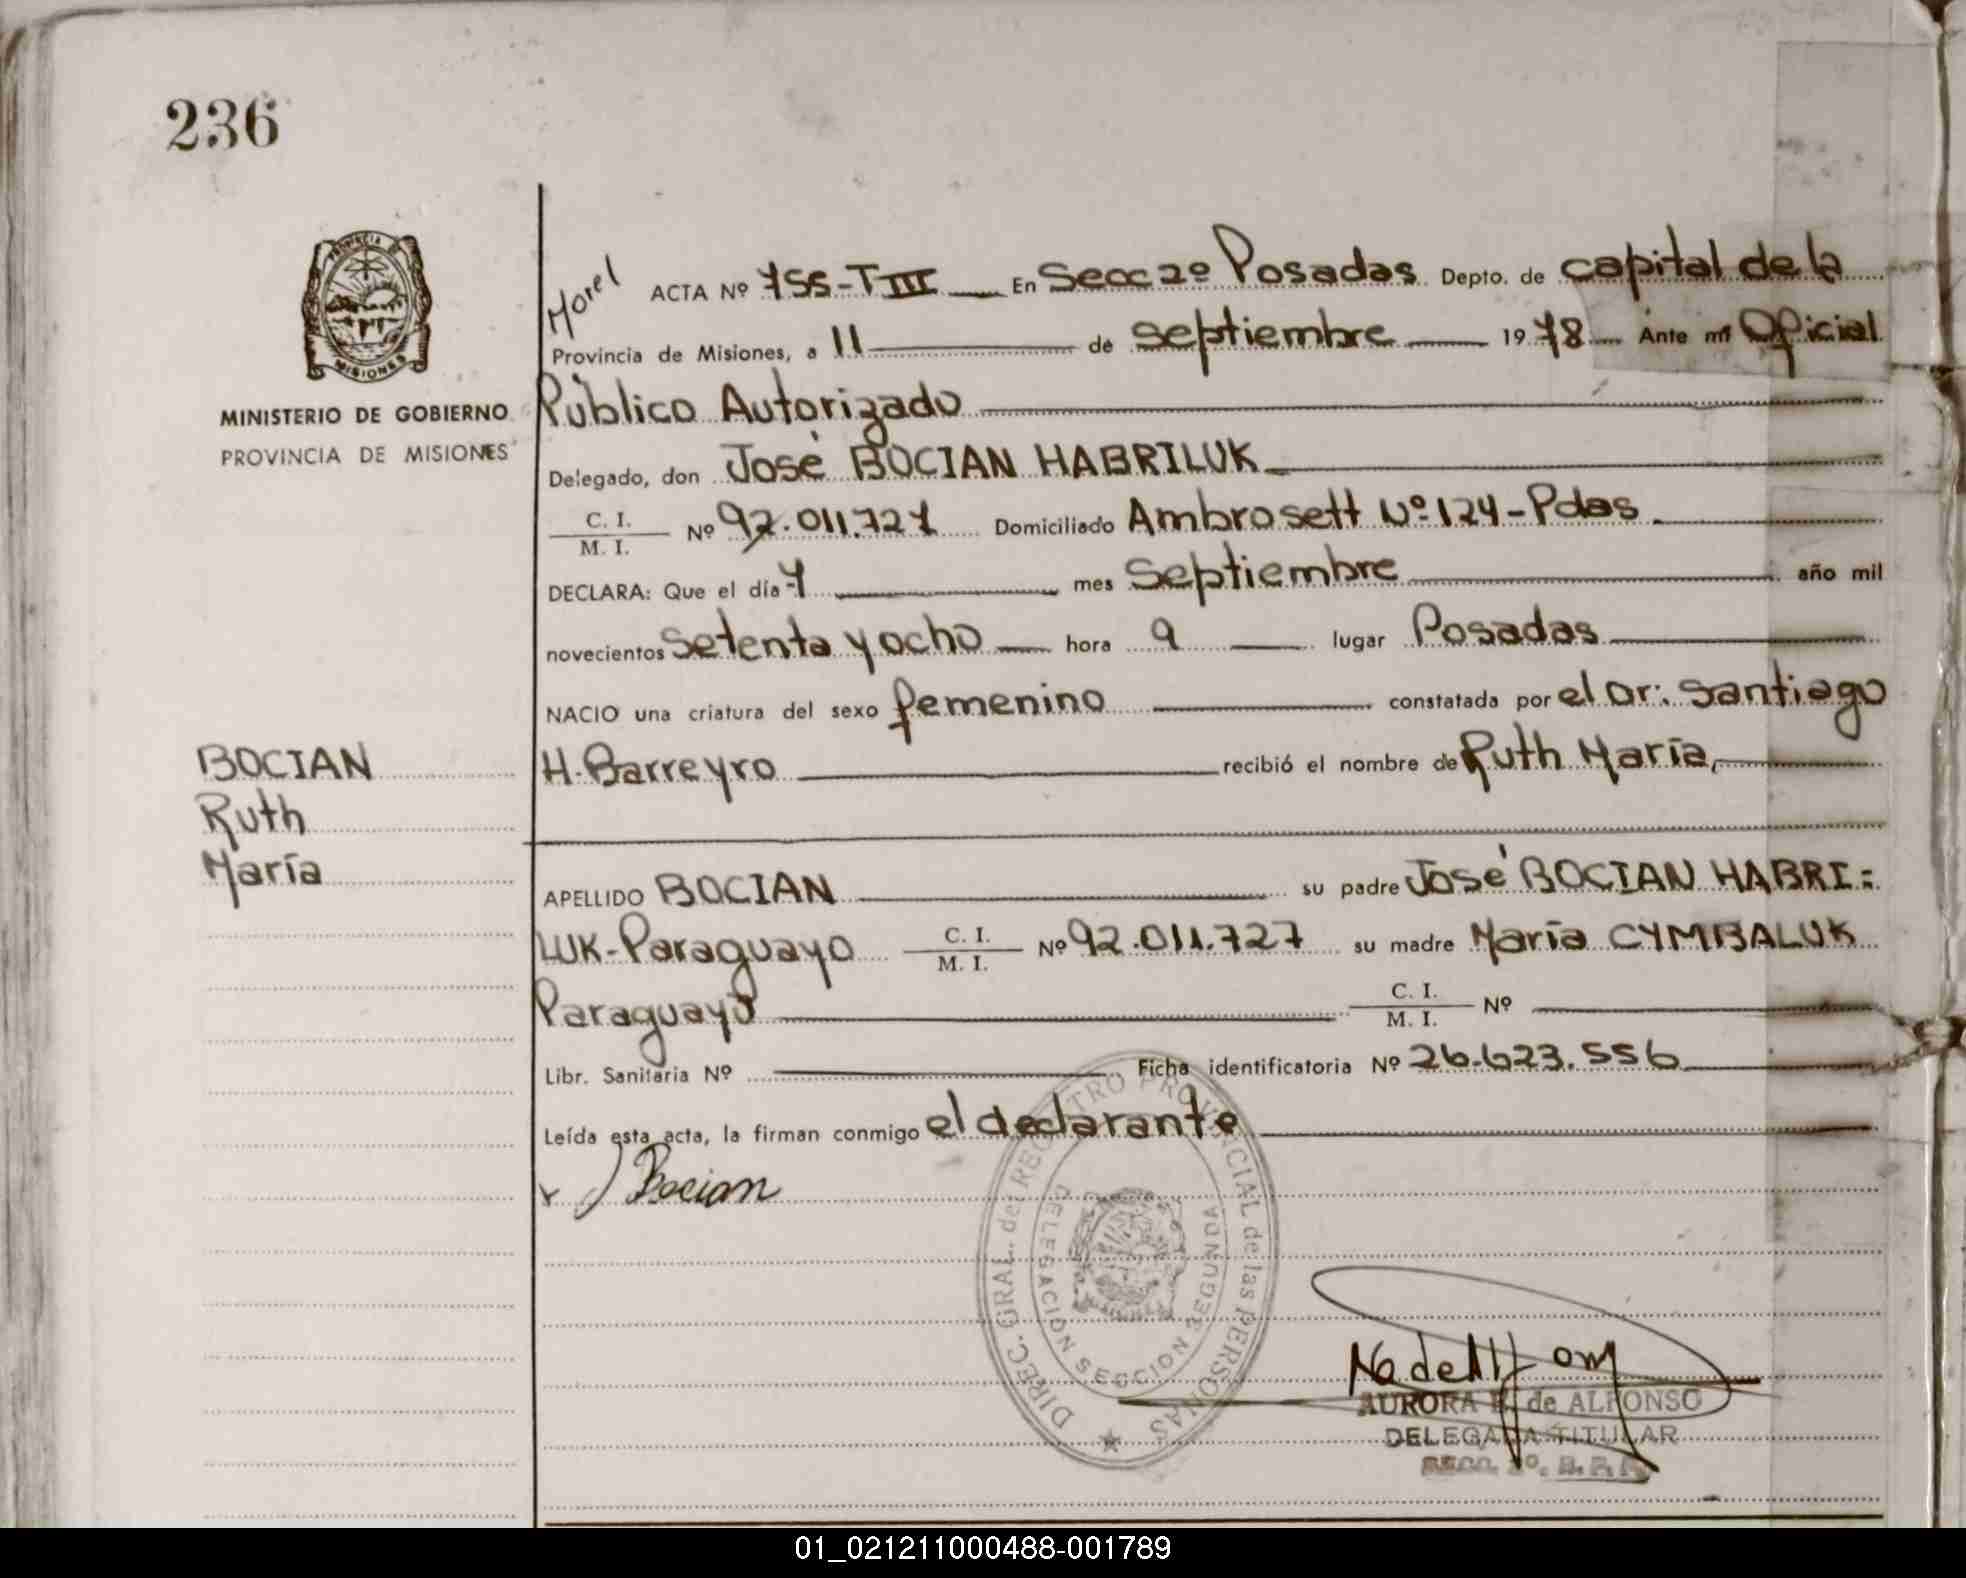 236
PROVINCIA DE
MISIONES
MINISTERIO DE GOBIERNO
PROVINCIA DE MISIONES
BOCIAN
Ruth
María
Morel
ACTA Nº 755-TIII En Secc 2º Posadas Depto. de capital de la
Provincia de Misiones, a 11 de septiembre 1978 Ante mí Oficial
Público Autorizado
Delegado, don José BOCIAN HABRILUK
C. I. / M. I. Nº 92.011.727 Domiciliado Ambrosett Nº 124-Pdas
DECLARA: Que el día 7 mes Septiembre año mil
novecientos setenta y ocho hora 9 lugar Posadas
NACIO una criatura del sexo femenino constatada por el Dr: Santiago
H. Barreyro recibió el nombre de Ruth María
APELLIDO BOCIAN su padre José BOCIAN HABRI=
LUK-Paraguayo C. I. / M. I. Nº 92.011.727 su madre María CYMBALUK
Paraguayo C. I. / M. I. Nº
Libr. Sanitaria Nº Ficha identificatoria Nº 26.623.556
Leída esta acta, la firman conmigo el declarante
Bocian
DIREC. GRAL. del REGISTRO PROVINCIAL de las PERSONAS
DELEGACION SECCION SEGUNDA
AURORA de ALFONSO
DELEGADA TITULAR
SECC. 2º. R.P.P.
01_021211000488-001789